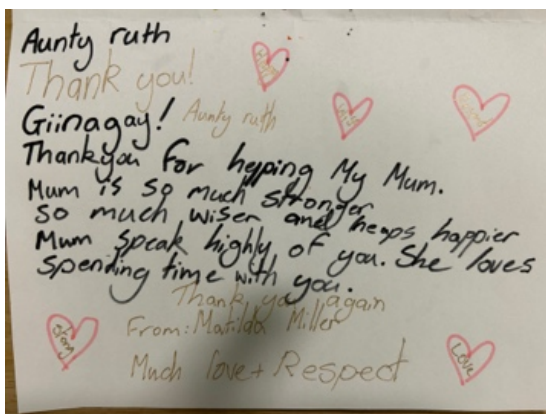 Aunty ruth
Thank you!
Giinagay! Aunty ruth
Thankyou for heping My Mum.
Mum is so much stronger
so much wiser and heaps happier
Mum speak highly of you. She loves
spending time with you.
Thank you again
From: Matilda Miller
Much love + Respect
Story
Love